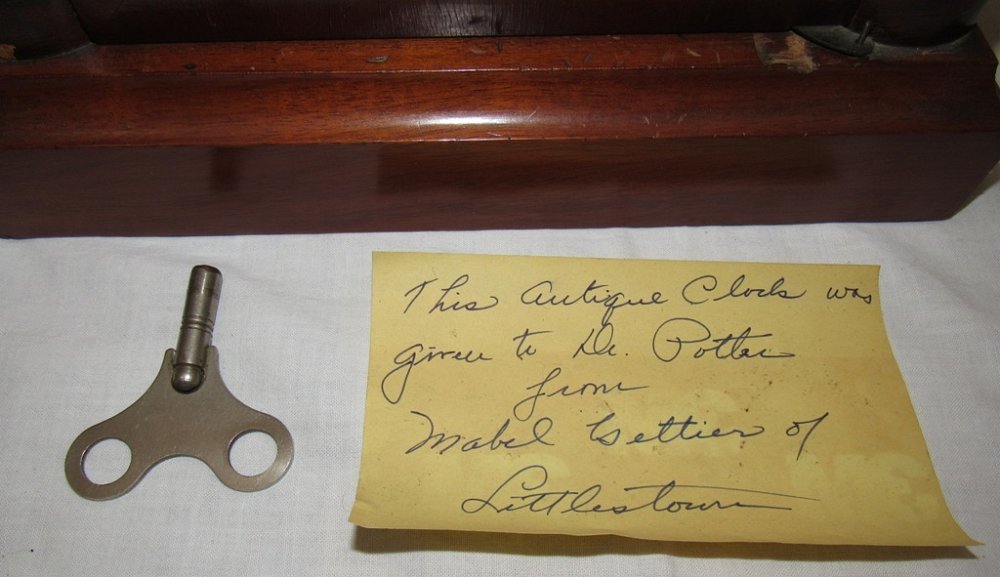 This Antique Clock was
given to Dr. Potter
from
Mabel Gettier of
Littlestown